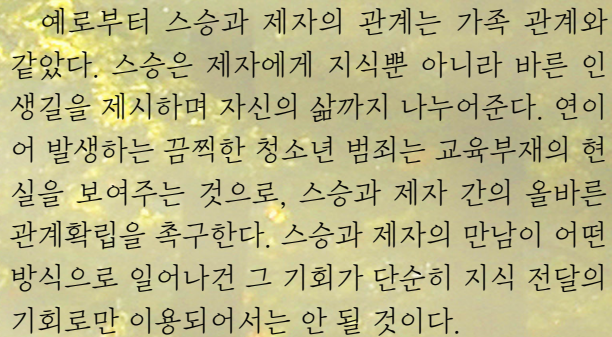 예로부터 스승과 제자의 관계는 가족 관계와
같았다. 스승은 제자에게 지식뿐 아니라 바른 인
생길을 제시하며 자신의 삶까지 나누어준다. 연이
어 발생하는 끔찍한 청소년 범죄는 교육부재의 현
실을 보여주는 것으로, 스승과 제자 간의 올바른
관계확립을 촉구한다. 스승과 제자의 만남이 어떤
방식으로 일어나건 그 기회가 단순히 지식 전달의
기회로만 이용되어서는 안 될 것이다.